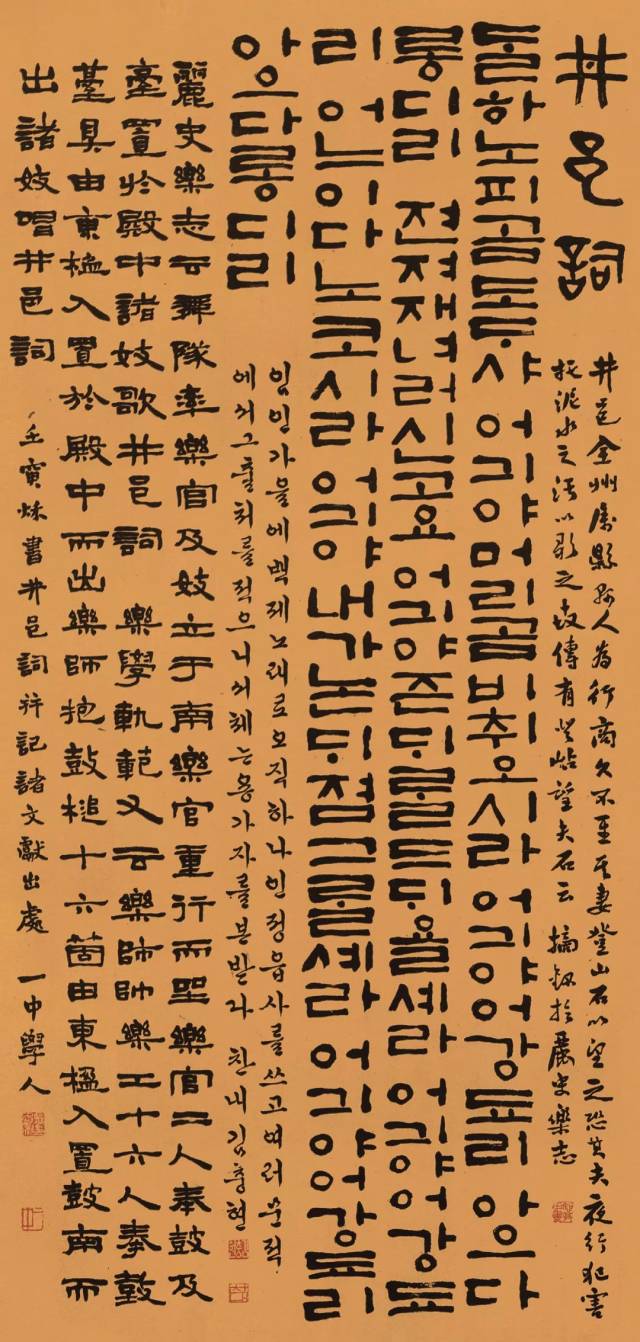 井邑詞
井邑全州屬縣縣人爲行商久不至其妻登山石以望之恐其夫夜行犯害
托泥水之汚以歌之 世傳有登岾望夫石云 摘錄於麗史樂志
ᄃᆞᆯ하노피곰도ᄃᆞ샤 어긔야머리곰비취오시라 어긔야어강됴리 아으다
롱디리 젼져재녀러신고요 어긔야즌ᄃᆡᄅᆞᆯ드ᄃᆡ욜셰라 어긔야어강됴
리 어느이다노코시라 어긔야내가논ᄃᆡ졈그ᄅᆞᆯ셰라 어긔야어강됴리
아으다롱디리
임인가을에백제노래로오직하나인정읍사를쓰고여러문적
에서그출처를적으니서체는용가자를본받다 찬내김충현
麗史樂志云舞隊率樂官及妓立于南樂官重行而坐樂官二人奉鼓及
臺置於殿中諸妓歌井邑詞 樂學軌範又云樂師帥樂工十六人奉鼓
臺具由東楹入置於殿中而出樂師抱鼓槌十六箇由東楹入置鼓南而
出諸妓唱井邑詞 壬寅秋書井邑詞幷記諸文獻出處 一中學人